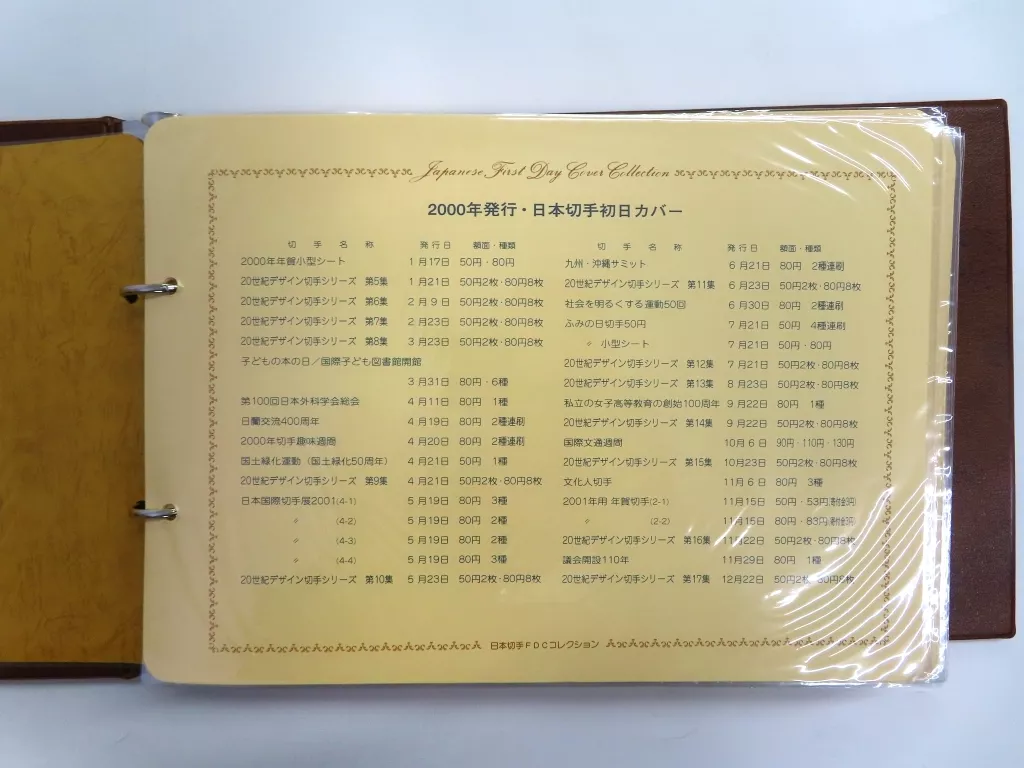 Japanese First Day Cover Collection
2000年発行・日本切手初日カバー
切手名称 発行日 額面・種類
2000年年賀小型シート 1月17日 50円・80円
20世紀デザイン切手シリーズ 第5集 1月21日 50円2枚・80円8枚
20世紀デザイン切手シリーズ 第6集 2月9日 50円2枚・80円8枚
20世紀デザイン切手シリーズ 第7集 2月23日 50円2枚・80円8枚
20世紀デザイン切手シリーズ 第8集 3月23日 50円2枚・80円8枚
子どもの本の日／国際子ども図書館開館
3月31日 80円・6種
第100回日本外科学会総会 4月11日 80円 1種
日蘭交流400周年 4月19日 80円 2種連刷
2000年切手趣味週間 4月20日 80円 2種連刷
国土緑化運動（国土緑化50周年） 4月21日 50円 1種
20世紀デザイン切手シリーズ 第9集 4月21日 50円2枚・80円8枚
日本国際切手展2001(4-1) 5月19日 80円 3種
〃 (4-2) 5月19日 80円 2種
〃 (4-3) 5月19日 80円 2種
〃 (4-4) 5月19日 80円 3種
20世紀デザイン切手シリーズ 第10集 5月23日 50円2枚・80円8枚
切手名称 発行日 額面・種類
九州・沖縄サミット 6月21日 80円 2種連刷
20世紀デザイン切手シリーズ 第11集 6月23日 50円2枚・80円8枚
社会を明るくする運動50回 6月30日 80円 2種連刷
ふみの日切手50円 7月21日 50円 4種連刷
〃 小型シート 7月21日 50円・80円
20世紀デザイン切手シリーズ 第12集 7月21日 50円2枚・80円8枚
20世紀デザイン切手シリーズ 第13集 8月23日 50円2枚・80円8枚
私立の女子高等教育の創始100周年 9月22日 80円 1種
20世紀デザイン切手シリーズ 第14集 9月22日 50円2枚・80円8枚
国際文通週間 10月6日 90円・110円・130円
20世紀デザイン切手シリーズ 第15集 10月23日 50円2枚・80円8枚
文化人切手 11月6日 80円 3種
2001年用 年賀切手(2-1) 11月15日 50円・53円(寄附金3円)
〃 (2-2) 11月15日 80円・83円(寄附金3円)
20世紀デザイン切手シリーズ 第16集 11月22日 50円2枚・80円8枚
議会開設110年 11月29日 80円 1種
20世紀デザイン切手シリーズ 第17集 12月22日 50円2枚・80円8枚
日本切手FDCコレクション